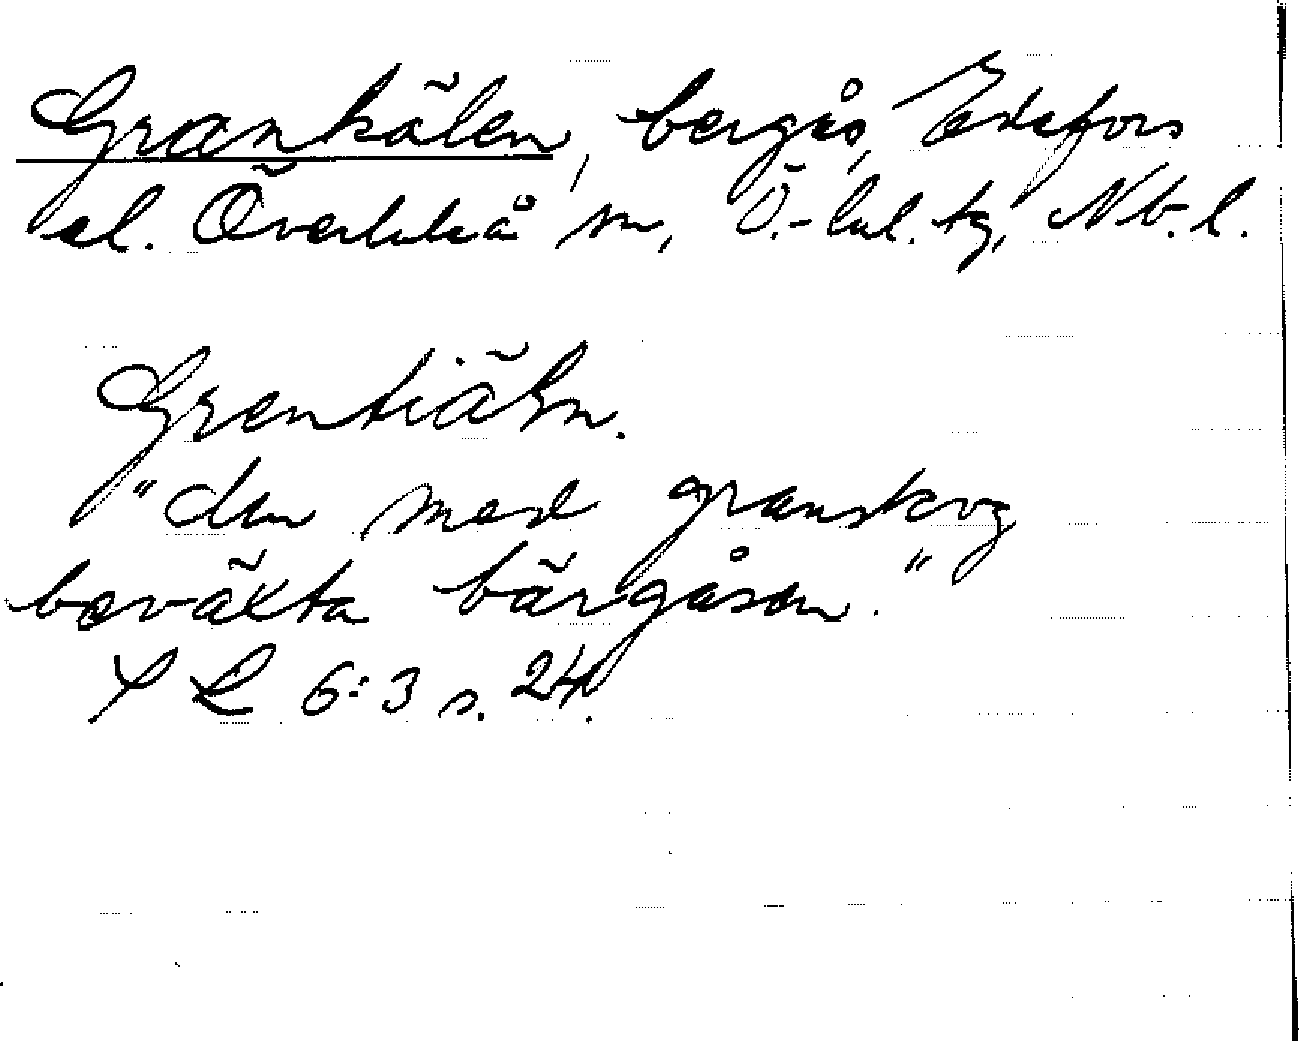 Grankälen, bergås, Edefors
el. Överluleå sn, Ö.-lul. tg, Nb. l.
Grentiäln.
"den med granskog
beväxta bärgåsen."
S L 6:3 s. 24.